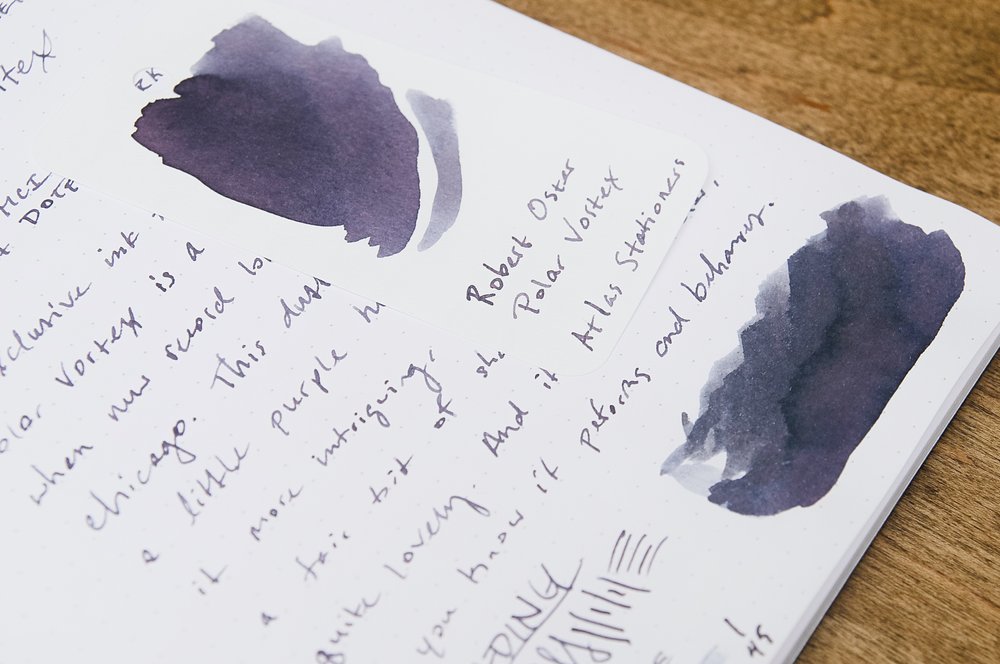 rtex
MCI
DOTE
xclusive ink
olar Vortex is a
when new record lo
Chicago. This dust
a little purple h
it more intriguing.
a fair bit of sh
quite lovely. And it
you know it performs and behaves.
DING
RK
Robert Oster
Polar Vortex
Atlas Stationers